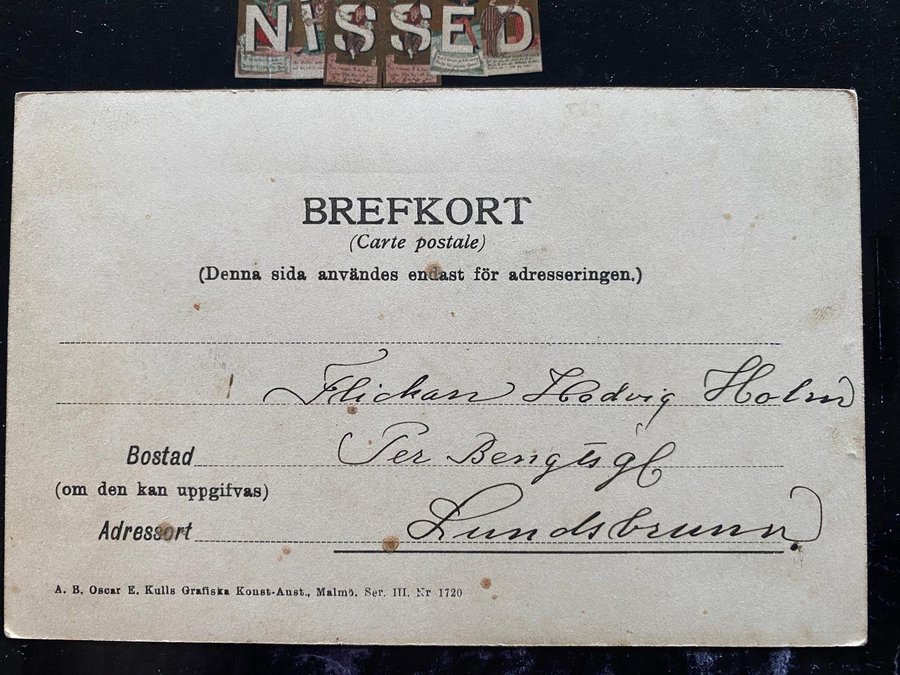 NISSED
BREFKORT
(Carte postale)
(Denna sida användes endast för adresseringen.)
Flickan Hedvig Holm
Bostad Per Bengtsg
(om den kan uppgifvas)
Adressort Lundsbrunn.
A. B. Oscar E. Kulls Grafiska Konst-Anst., Malmö. Ser. III. Nr 1720